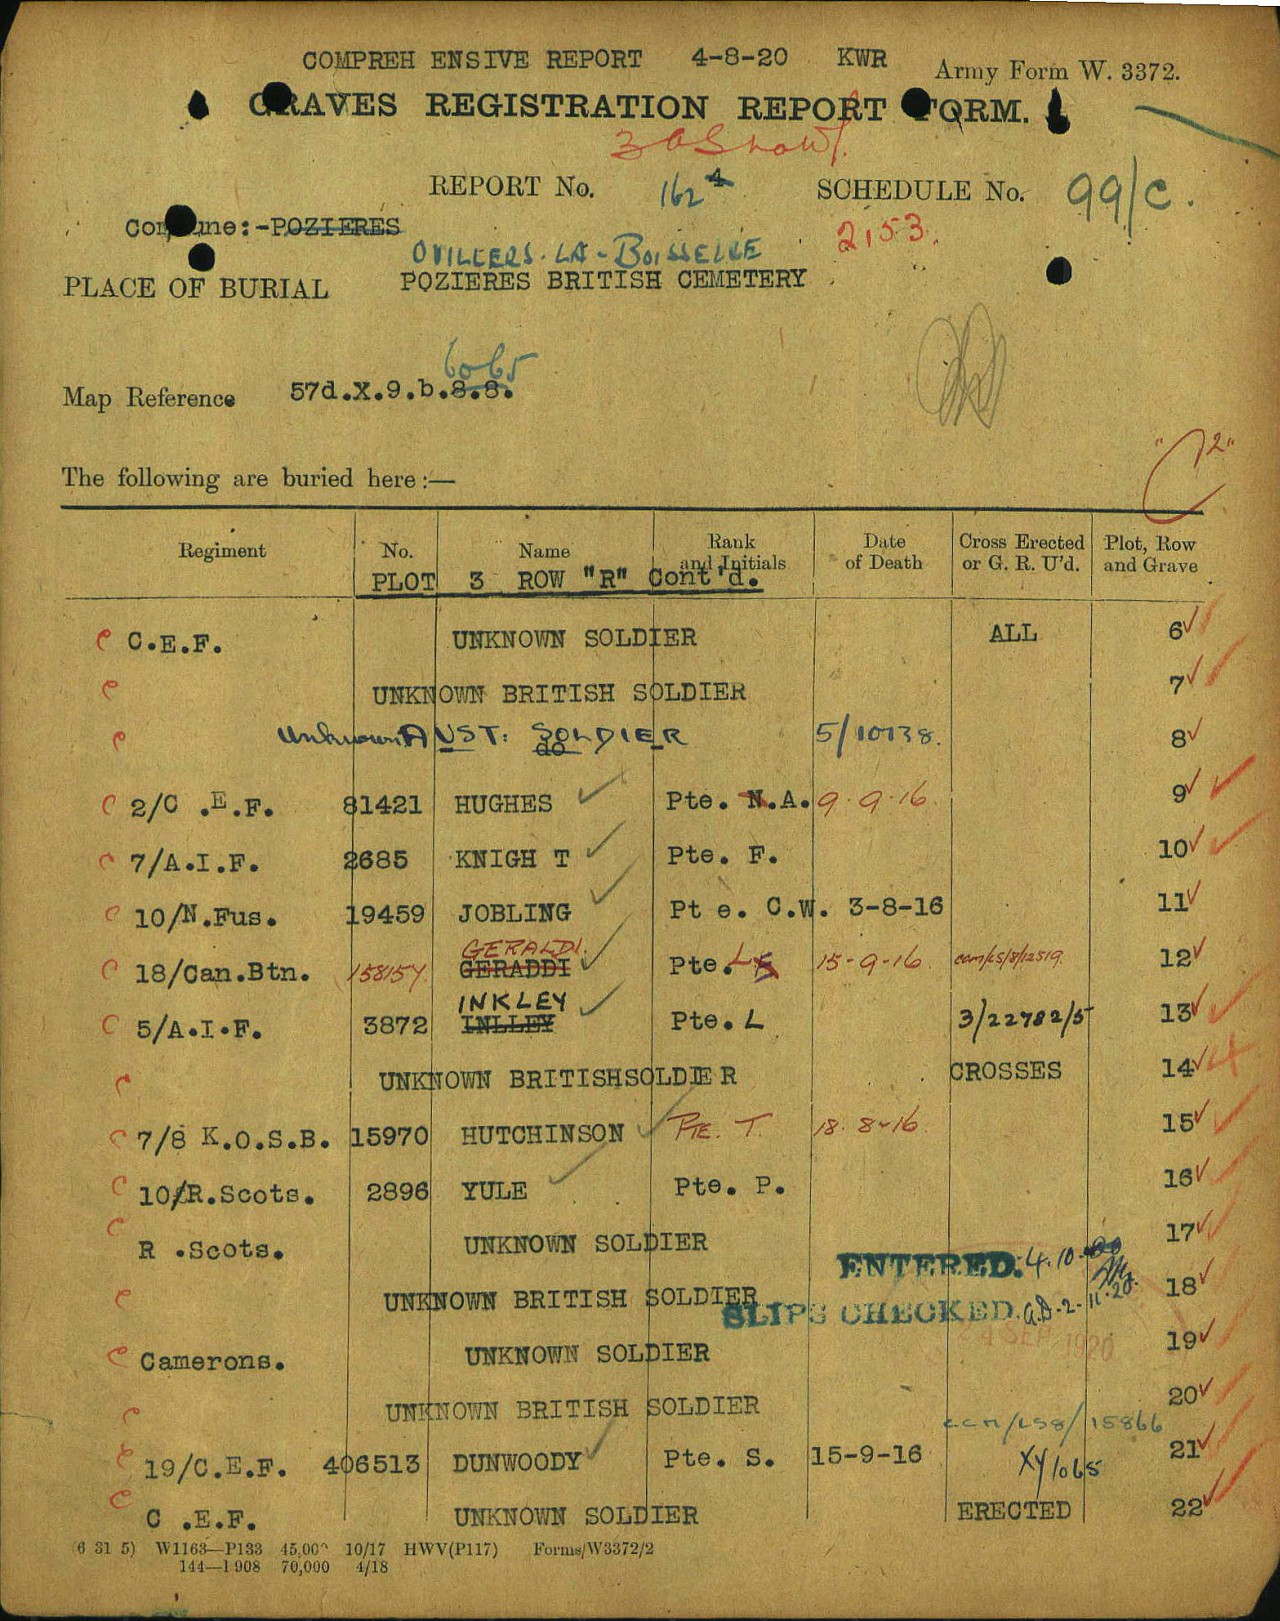 COMPREH ENSIVE REPORT 4-8-20 KWR
Army Form W. 3372.
GRAVES REGISTRATION REPORT FORM.
REPORT No. 162 4 SCHEDULE No. 99/C.
2153.
Commune:-POZIERES
OVILLERS-LA-BOISSELLE
PLACE OF BURIAL POZIERES BRITISH CEMETERY
60 65
Map Reference 57d.X.9.b.8.8.
"C2"
The following are buried here :—
Regiment No. Name Rank and Initials Date of Death Cross Erected or G. R. U'd. Plot, Row and Grave
PLOT 3 ROW "R" Cont'd.
C.E.F. UNKNOWN SOLDIER ALL 6
UNKNOWN BRITISH SOLDIER 7
Unknown AUST: SOLDIER do 5/10138. 8
2/C .E.F. 81421 HUGHES Pte. N.A. 9.9.16. 9
7/A.I.F. 2685 KNIGH T Pte. F. 10
10/N.Fus. 19459 JOBLING Pt e. C.W. 3-8-16 11
GERALDI.
18/Can.Btn. 158157. GERADDI Pte. L 15-9-16 12
INKLEY
5/A.I.F. 3872 INLLEY Pte. L 3/22782/5 13
UNKNOWN BRITISHSOLDIE R CROSSES 14
7/8 K.O.S.B. 15970 HUTCHINSON PTE. T. 18.8-16. 15
10/R.Scots. 2896 YULE Pte. P. 16
R .Scots. UNKNOWN SOLDIER 17
ENTERED. 4.10.20
UNKNOWN BRITISH SOLDIER 18
SLIPS CHECKED. 2-11-20
24 SEP 1920
Camerons. UNKNOWN SOLDIER 19
UNKNOWN BRITISH SOLDIER 20
ccm/LS8/15866
19/C.E.F. 406513 DUNWOODY Pte. S. 15-9-16 XY/065 21
C .E.F. UNKNOWN SOLDIER ERECTED 22
(6 31 5) W1163—P133 45,000 10/17 HWV(P117) Forms/W3372/2
144—1908 70,000 4/18